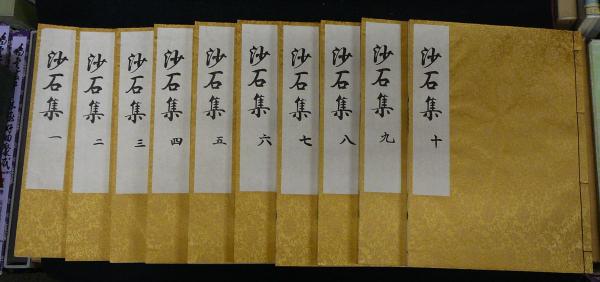 沙石集 一
沙石集 二
沙石集 三
沙石集 四
沙石集 五
沙石集 六
沙石集 七
沙石集 八
沙石集 九
沙石集 十